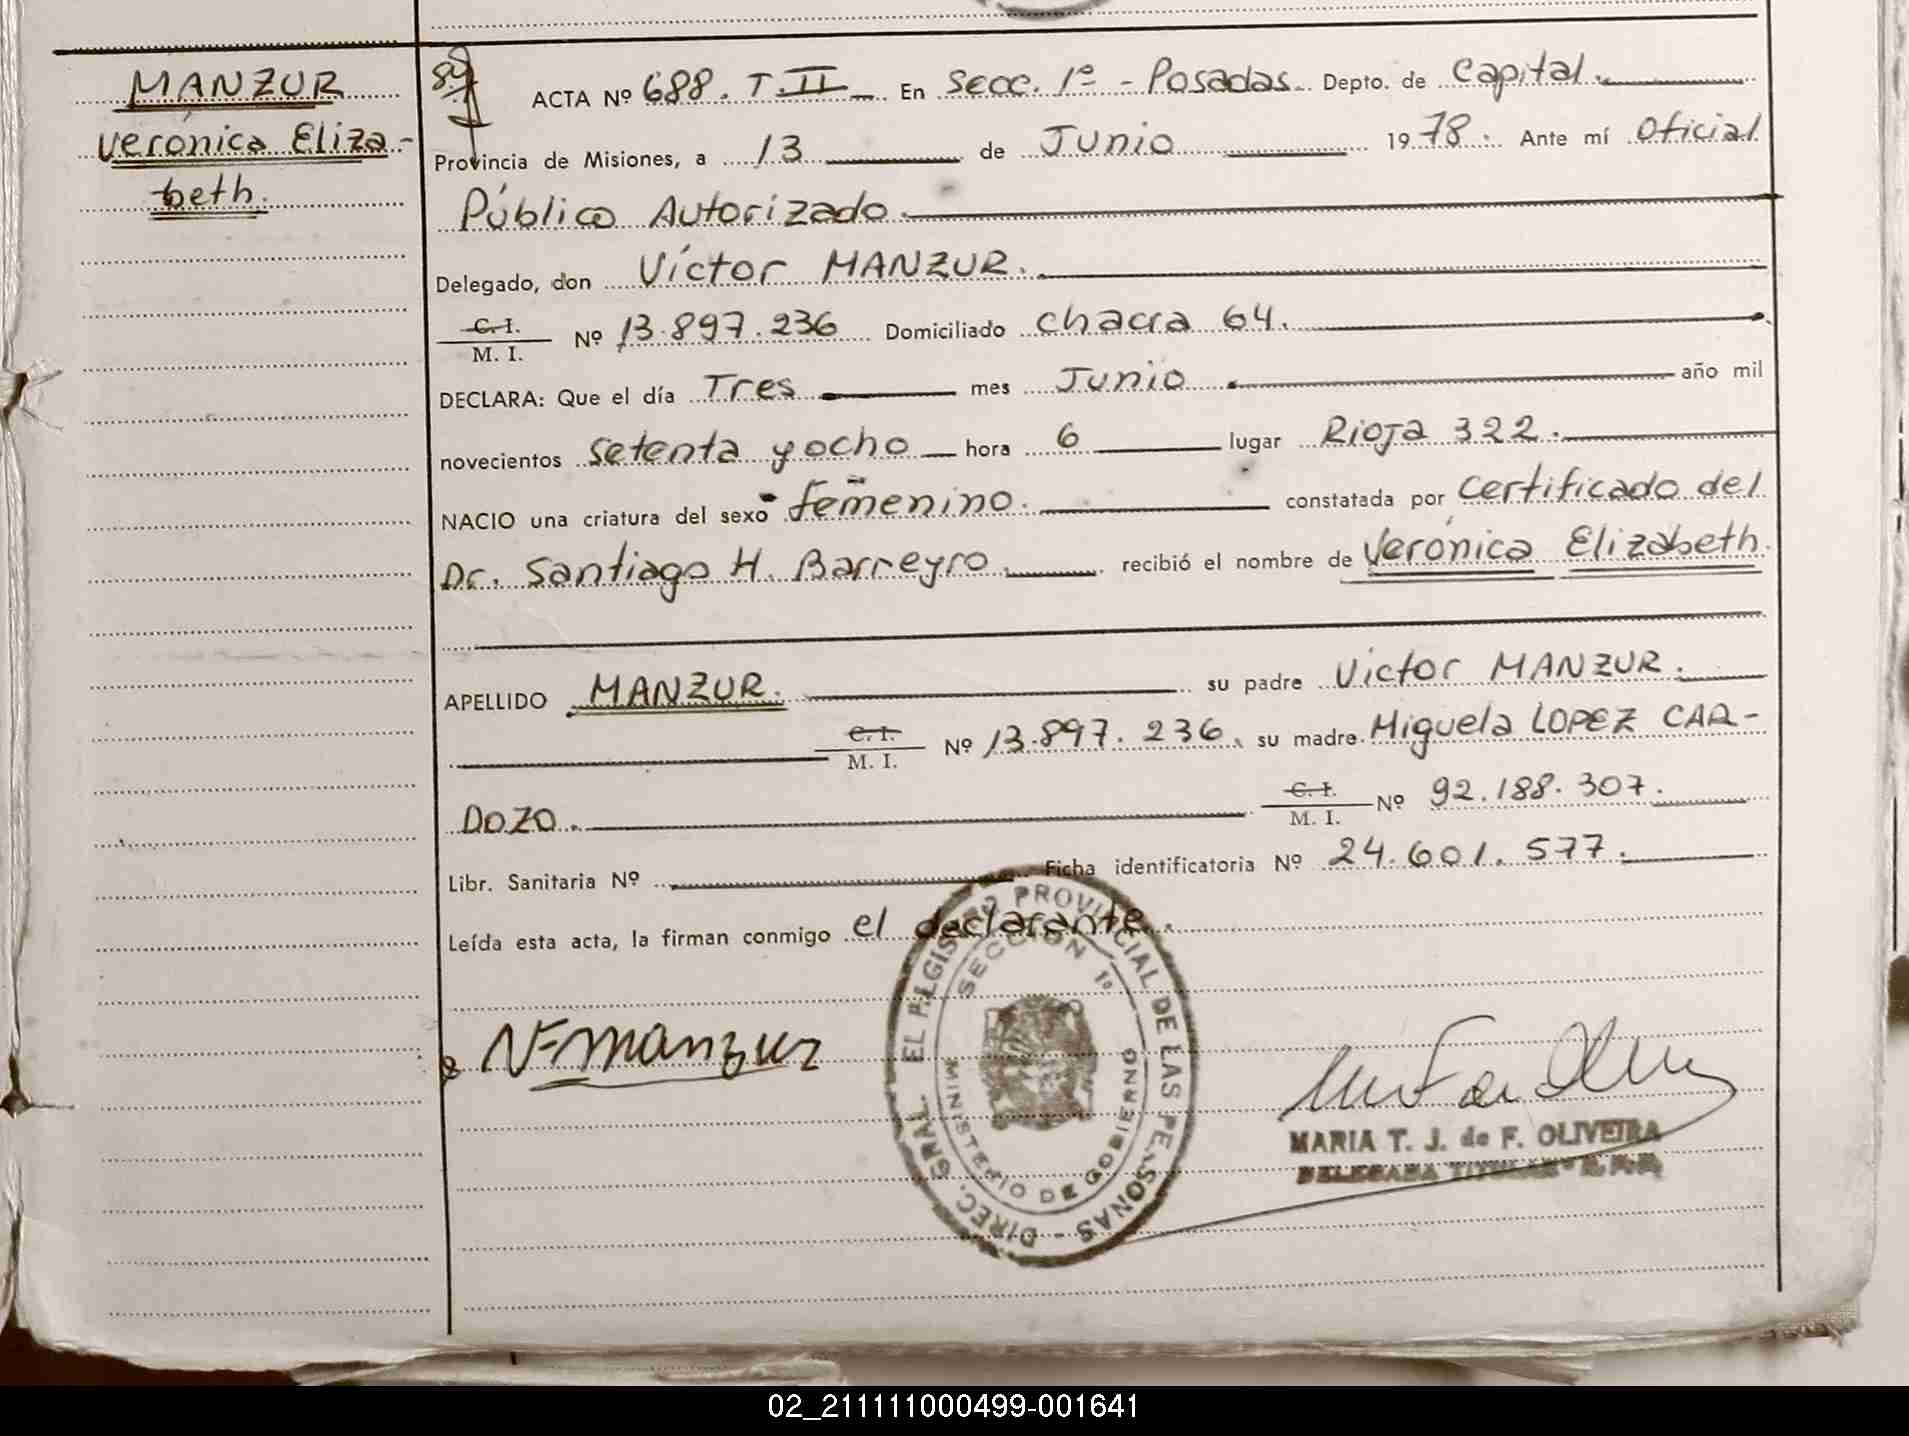 MANZUR
Verónica Eliza-
beth.
ACTA Nº 688. T. II En Secc. 1ª - Posadas. Depto. de Capital.
Provincia de Misiones, a 13 de Junio 1978. Ante mí Oficial
Público Autorizado.
Delegado, don Víctor MANZUR.
C. I.
M. I.
Nº 13.897.236 Domiciliado Chacra 64.
DECLARA: Que el día Tres mes Junio año mil
novecientos setenta y ocho hora 6 lugar Rioja 322.
NACIO una criatura del sexo femenino. constatada por certificado del
Dr. Santiago H. Barreyro. recibió el nombre de Verónica Elizabeth.
APELLIDO MANZUR. su padre Victor MANZUR.
C. I.
M. I.
Nº 13.897.236. su madre Miguela LOPEZ CAR-
DOZO.
C. I.
M. I.
Nº 92.188.307.
Libr. Sanitaria Nº Ficha identificatoria Nº 24.601.577.
Leída esta acta, la firman conmigo el declarante.
manzur
DIREC. GRAL. PROVINCIAL DE LAS PERSONAS
SECCION 1º
MINISTERIO DE GOBIERNO
MARIA T. J. de F. OLIVEIRA
DELEGADA TITULAR
02_211111000499-001641